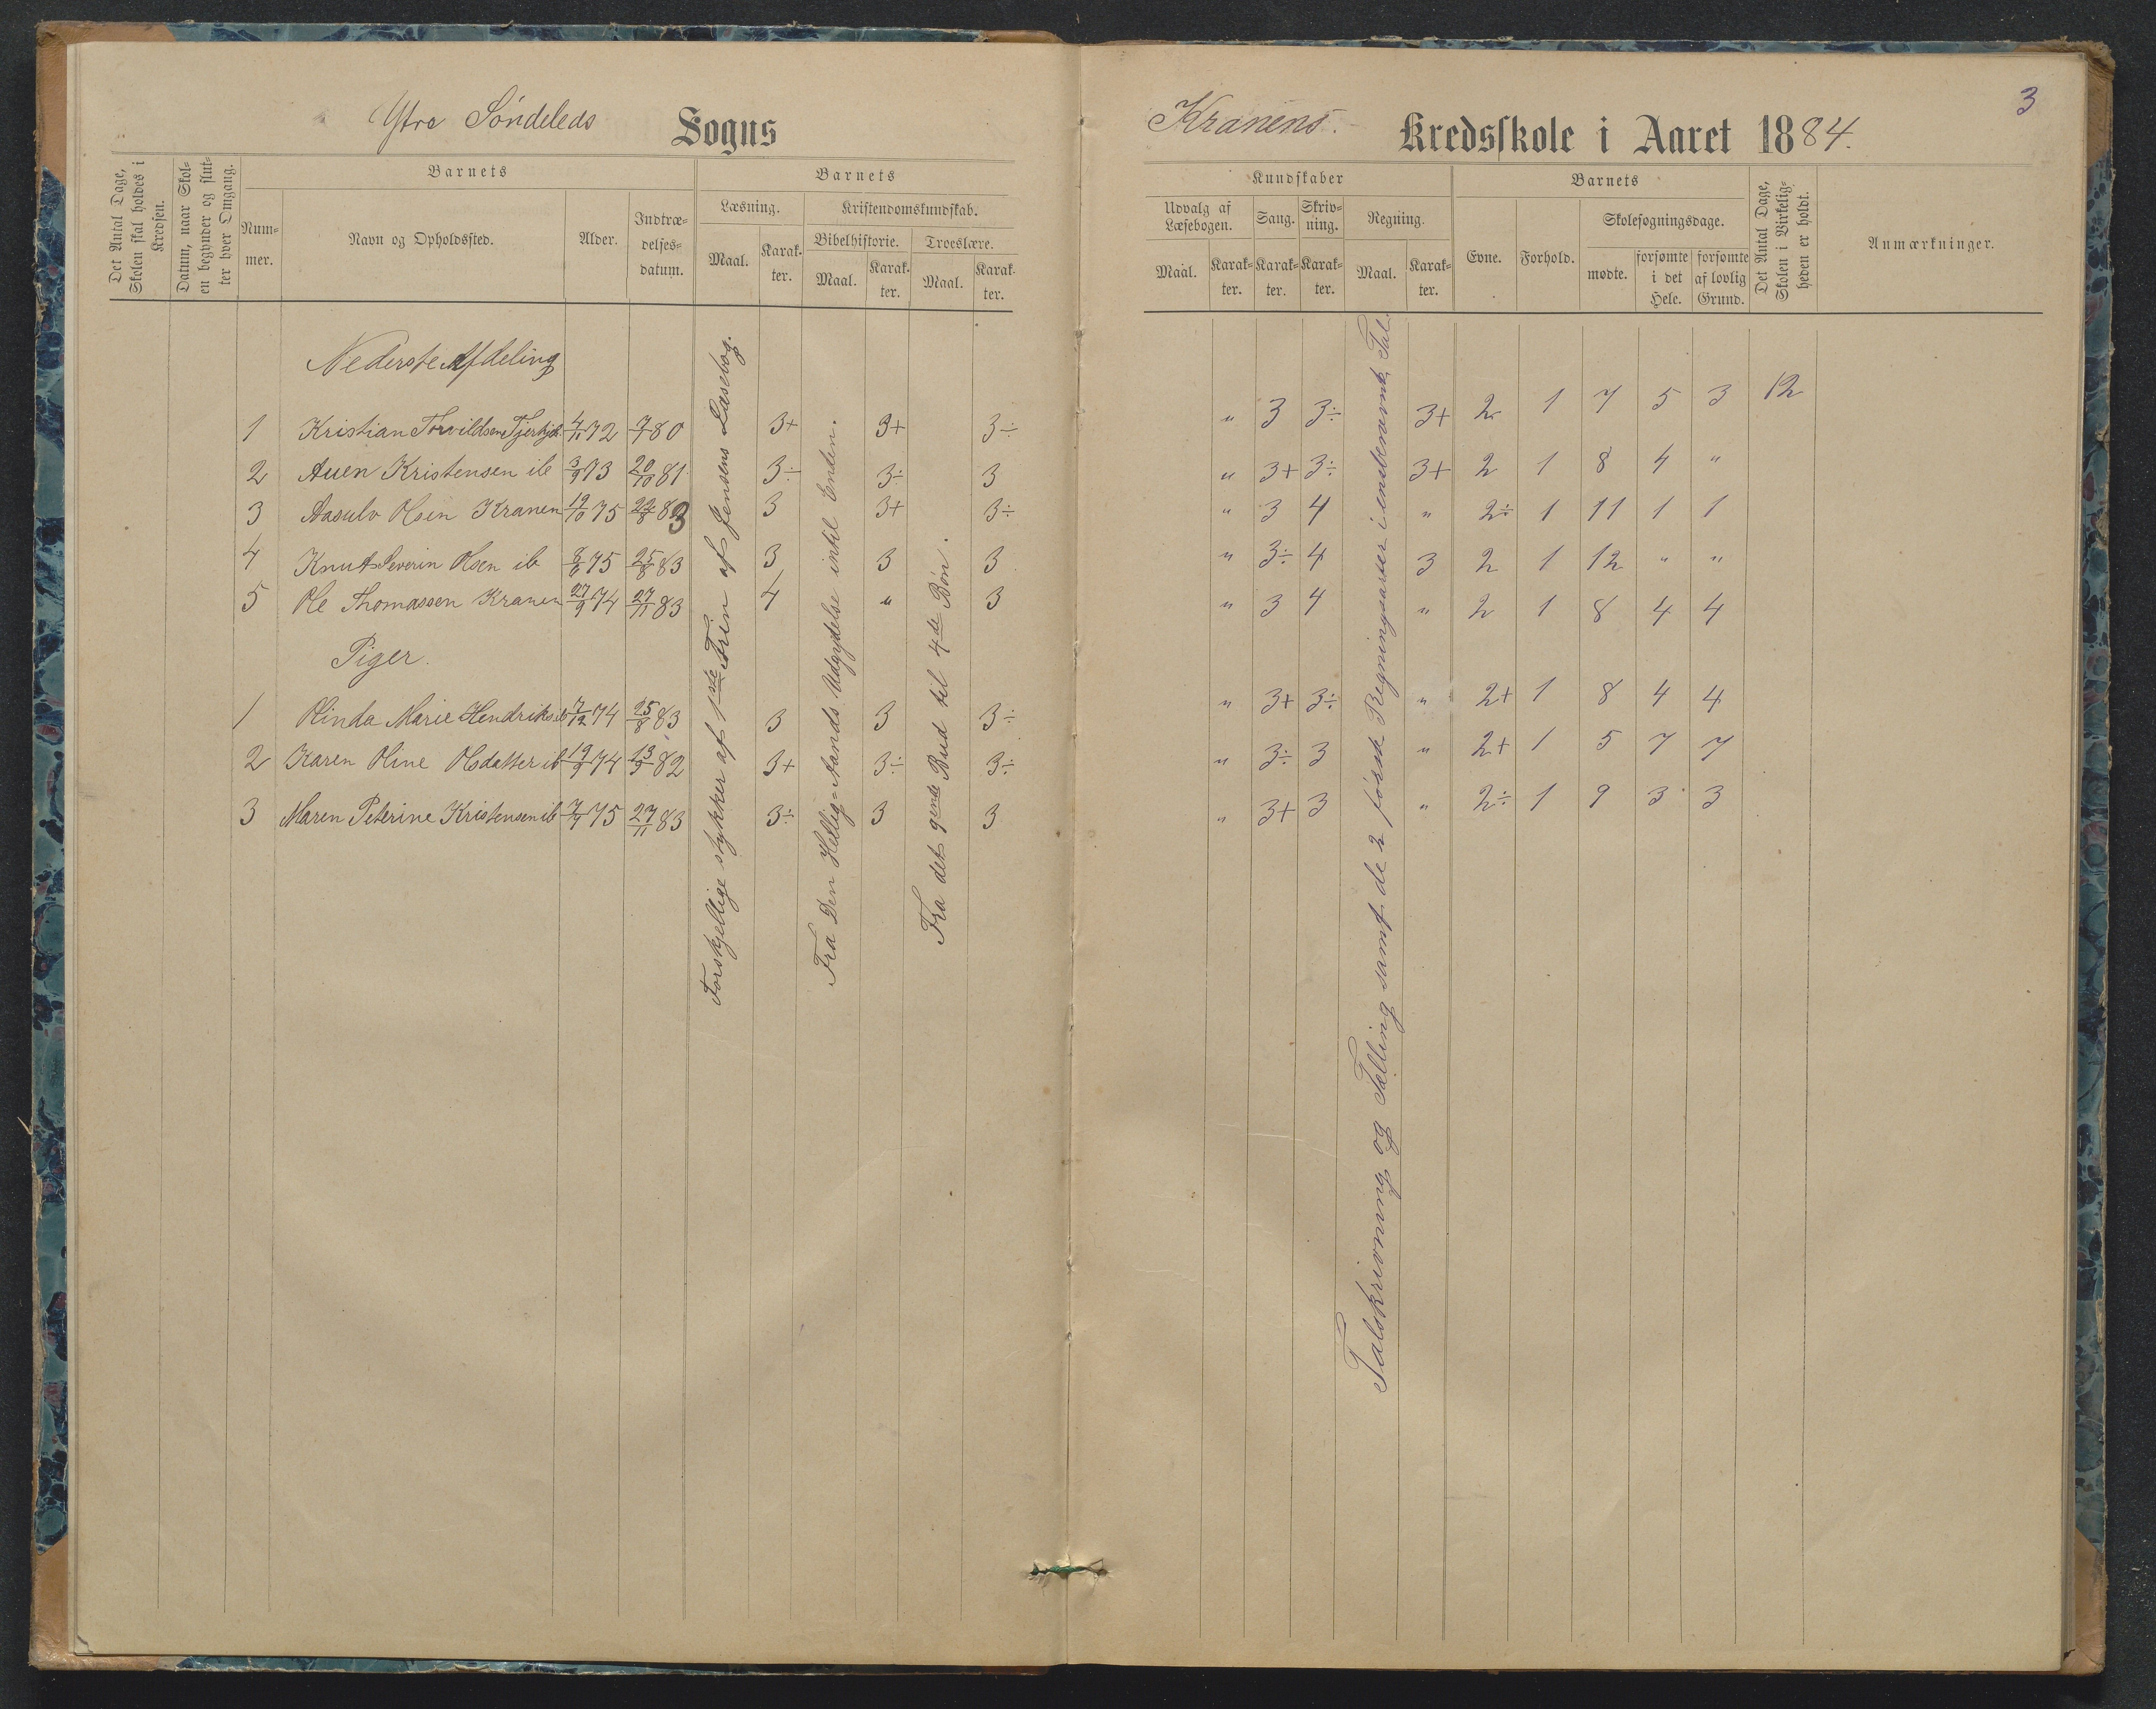 Ytre Söndeleds Sogns
Det Antal Dage, Skolen skal holdes i Kredsen.
Datum, naar Skolen begynder og slutter hver Omgang.
Barnets
Nummer.
Navn og Opholdssted.
Alder.
Indtrædelsesdatum.
Barnets
Læsning.
Kristendomskundskab.
Maal.
Karakter.
Bibelhistorie.
Troeslære.
Maal.
Karakter.
Maal.
Karakter.
Nederste Afdeling
1 Kristian Torvildsen 4/11 72 7/7 80 3+ 3+ 3÷
2 Auen Kristensen ib 3/9 73 20/10 81 3÷ 3÷ 3
3 Aasulv Olsen Kranen 19/10 75 22/8 83 3 3+ 3÷
4 Knut Severin Olsen ib 8/6 75 25/8 83 3 3 3
5 Ole Thomassen Kranen 27/9 74 27/11 83 4 " 3
Piger.
1 Olinda Marie Hendriks ib 7/12 74 25/8 83 3 3 3÷
2 Karen Oline Olsdatter ib 19/9 74 13/9 82 3+ 3÷ 3÷
3 Maren Peterine Kristensen ib 7/7 75 27/11 83 3÷ 3 3
Forskjellige stykker af 1ste Trin af Jensens Læsebog.
Fra Den Hellig-Aands Udgydelse intil Enden.
Fra det 9ende Bud til 4de Bön.
3
Kranens. Kredsskole i Aaret 1884.
Kundskaber
Udvalg af Læsebogen.
Sang.
Skrivning.
Regning.
Maal.
Karakter.
Karakter.
Karakter.
Maal.
Karakter.
Barnets
Evne.
Forhold.
Skolesøgningsdage.
mødte.
forsømte i det Hele.
forsømte af lovlig Grund.
Det Antal Dage, Skolen i Virkeligheden er holdt.
Anmærkninger.
" 3 3÷ 3+ 2 1 7 5 3 12
" 3+ 3÷ 3+ 2 1 8 4 "
" 3 4 " 2÷ 1 11 1 1
" 3÷ 4 3 2 1 12 " "
" 3 4 " 2 1 8 4 4
" 3+ 3÷ " 2+ 1 8 4 4
" 3÷ 3 " 2+ 1 5 7 7
" 3+ 3 " 2÷ 1 9 3 3
Talskrivning og Tælling samt de 2 første Regningsarter i ensbenævnte Tal.